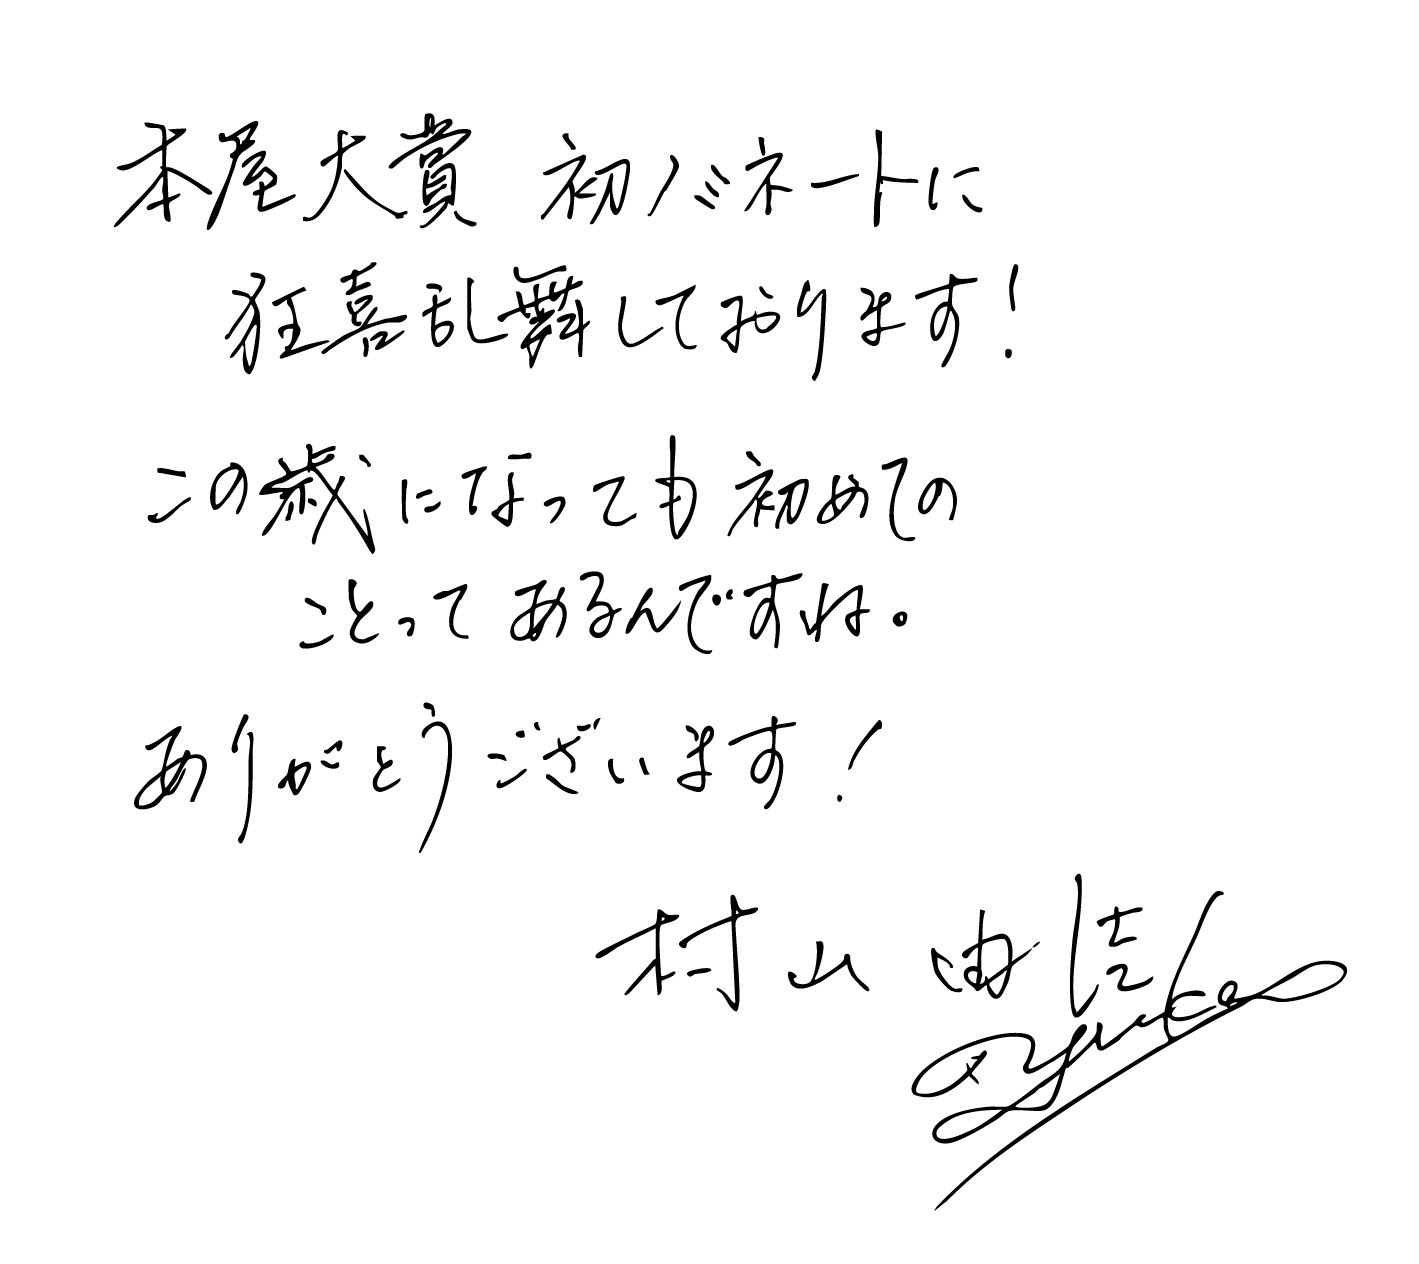 本屋大賞 初ノミネートに
狂喜乱舞しております!
この歳になっても初めての
ことってあるんですね。
ありがとうございます!
村山由佳
yuka